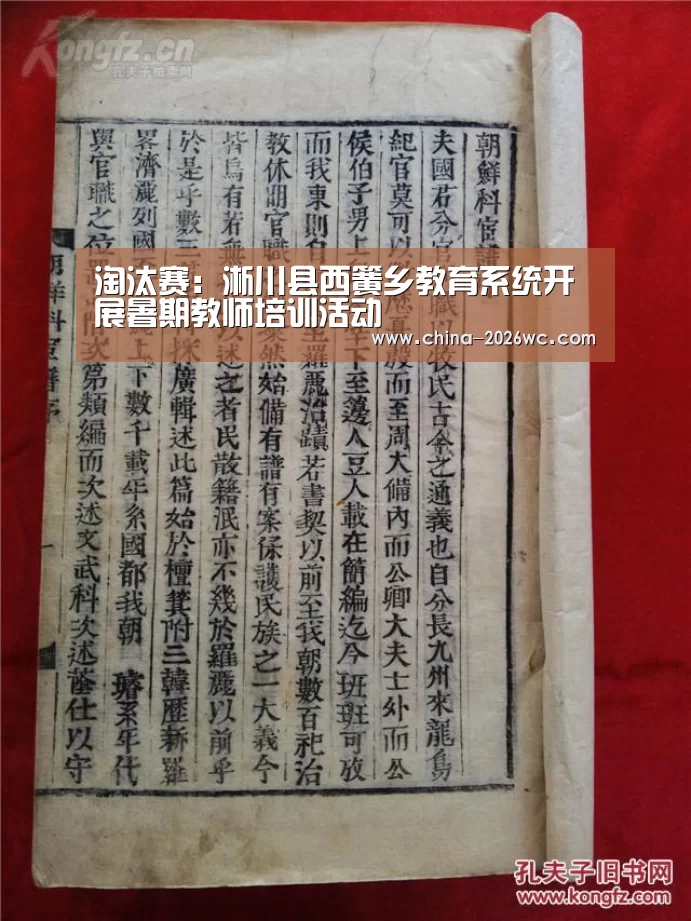 Kongfz.cn
孔夫子拍卖网
淘汰赛：淅川县西簧乡教育系统开
展暑期教师培训活动
www.china-2026wc.com
朝鮮科宦譜
夫國君分官
職以牧民古今之通義也自分長九州來龍鳥
紀官莫可以
殷而至周大備內而公卿大夫士外而公
侯伯子男上
下至籩人豆人載在簡編迄今班班可攷
而我東則自
羅麗治蹟若書契以前至我朝數百祀治
教休明官職
然始備有譜有案保護民族之一大義今
皆烏有若無
以述之者民散籍泯亦不幾於羅麗以前乎
於是乎數三
採廣輯述此篇始於檀箕附三韓歷新羅
畧濟麗列國
上下數千載年系國都我朝 璿系年代
與官職之位
次第類編而次述文武科次述蔭仕以守
朝鮮科宦譜序
孔夫子旧书网
www.kongfz.com